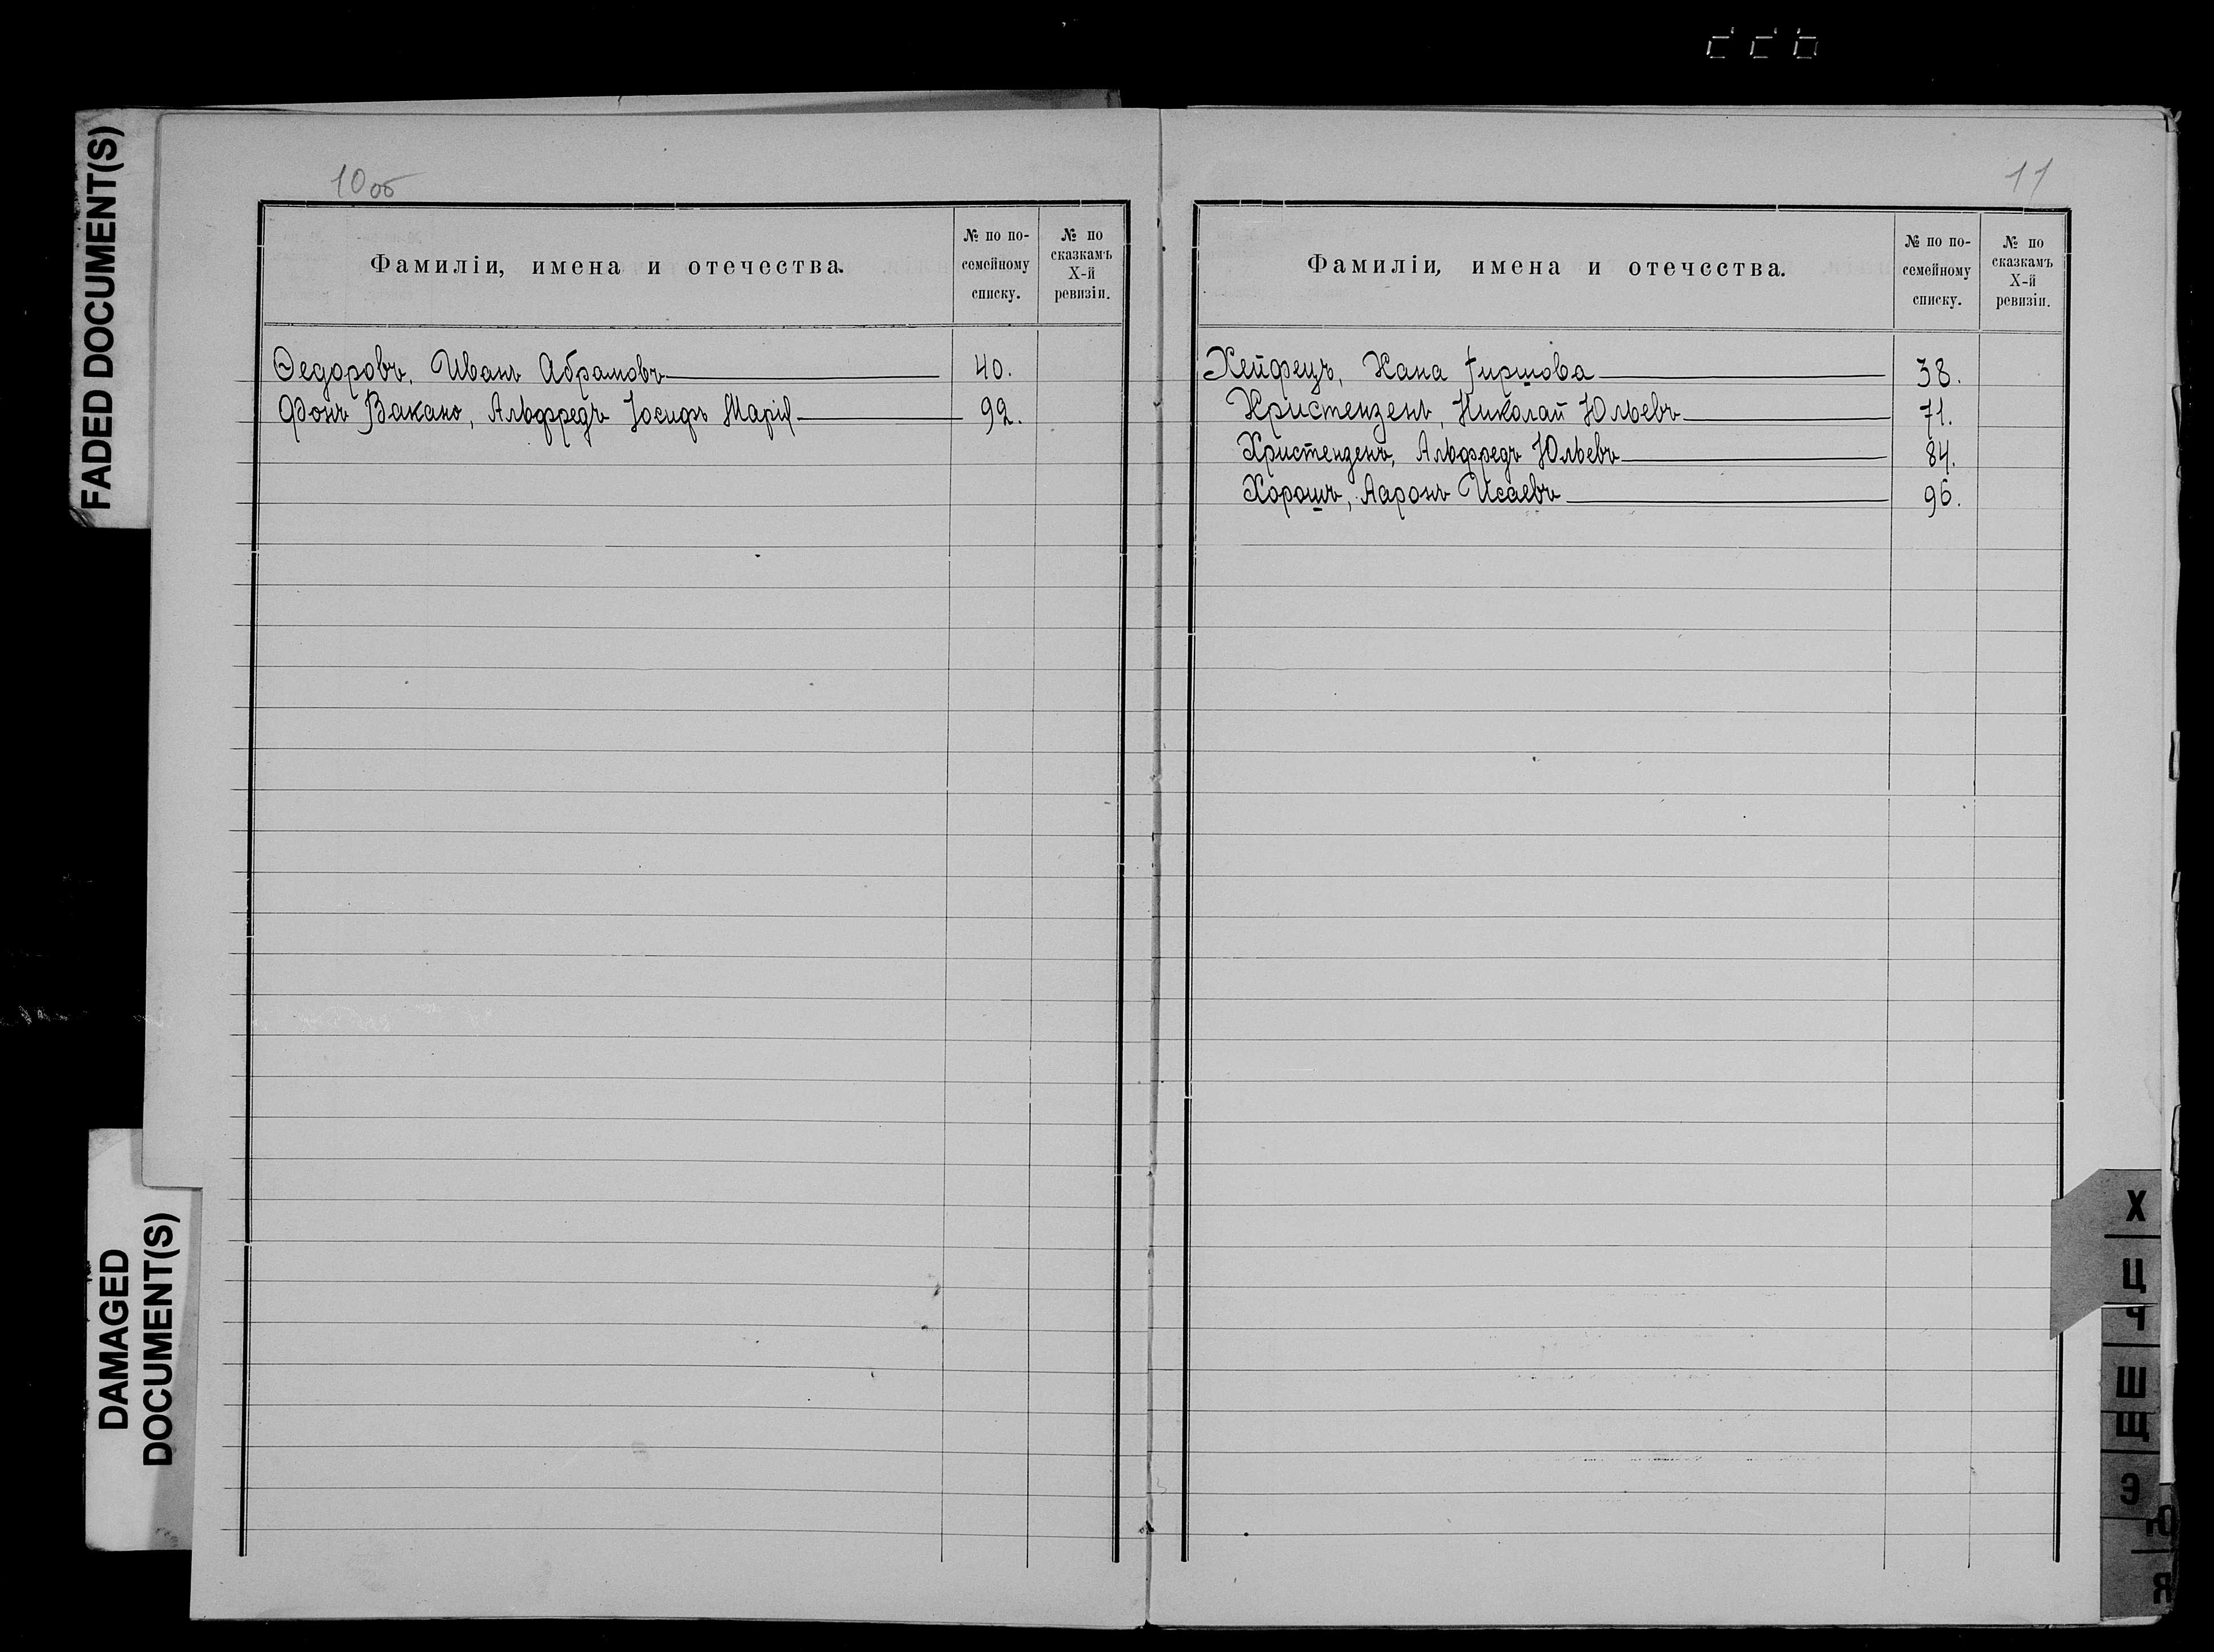 FADED DOCUMENT(S)
10об
Фамиліи, имена и отечества.
№ по по-
семейному
списку.
№ по
сказкамъ
X-й
ревизіи.
Ѳедоровъ, Иванъ Абрамовъ 40.
Фонъ Вакано, Альфредъ Іосифъ Марія 92.
DAMAGED
DOCUMENT(S)
11
Фамиліи, имена и отечества.
№ по по-
семейному
списку.
№ по
сказкамъ
X-й
ревизіи.
Хейфецъ, Хана Гиршова 38.
Христензенъ, Николай Юльевъ 71.
Христензенъ, Альфредъ Юльевъ 84.
Хорошъ, Ааронъ Исаевъ 96.
Х
Ц
Ч
Ш
Щ
Э
Ю
Я